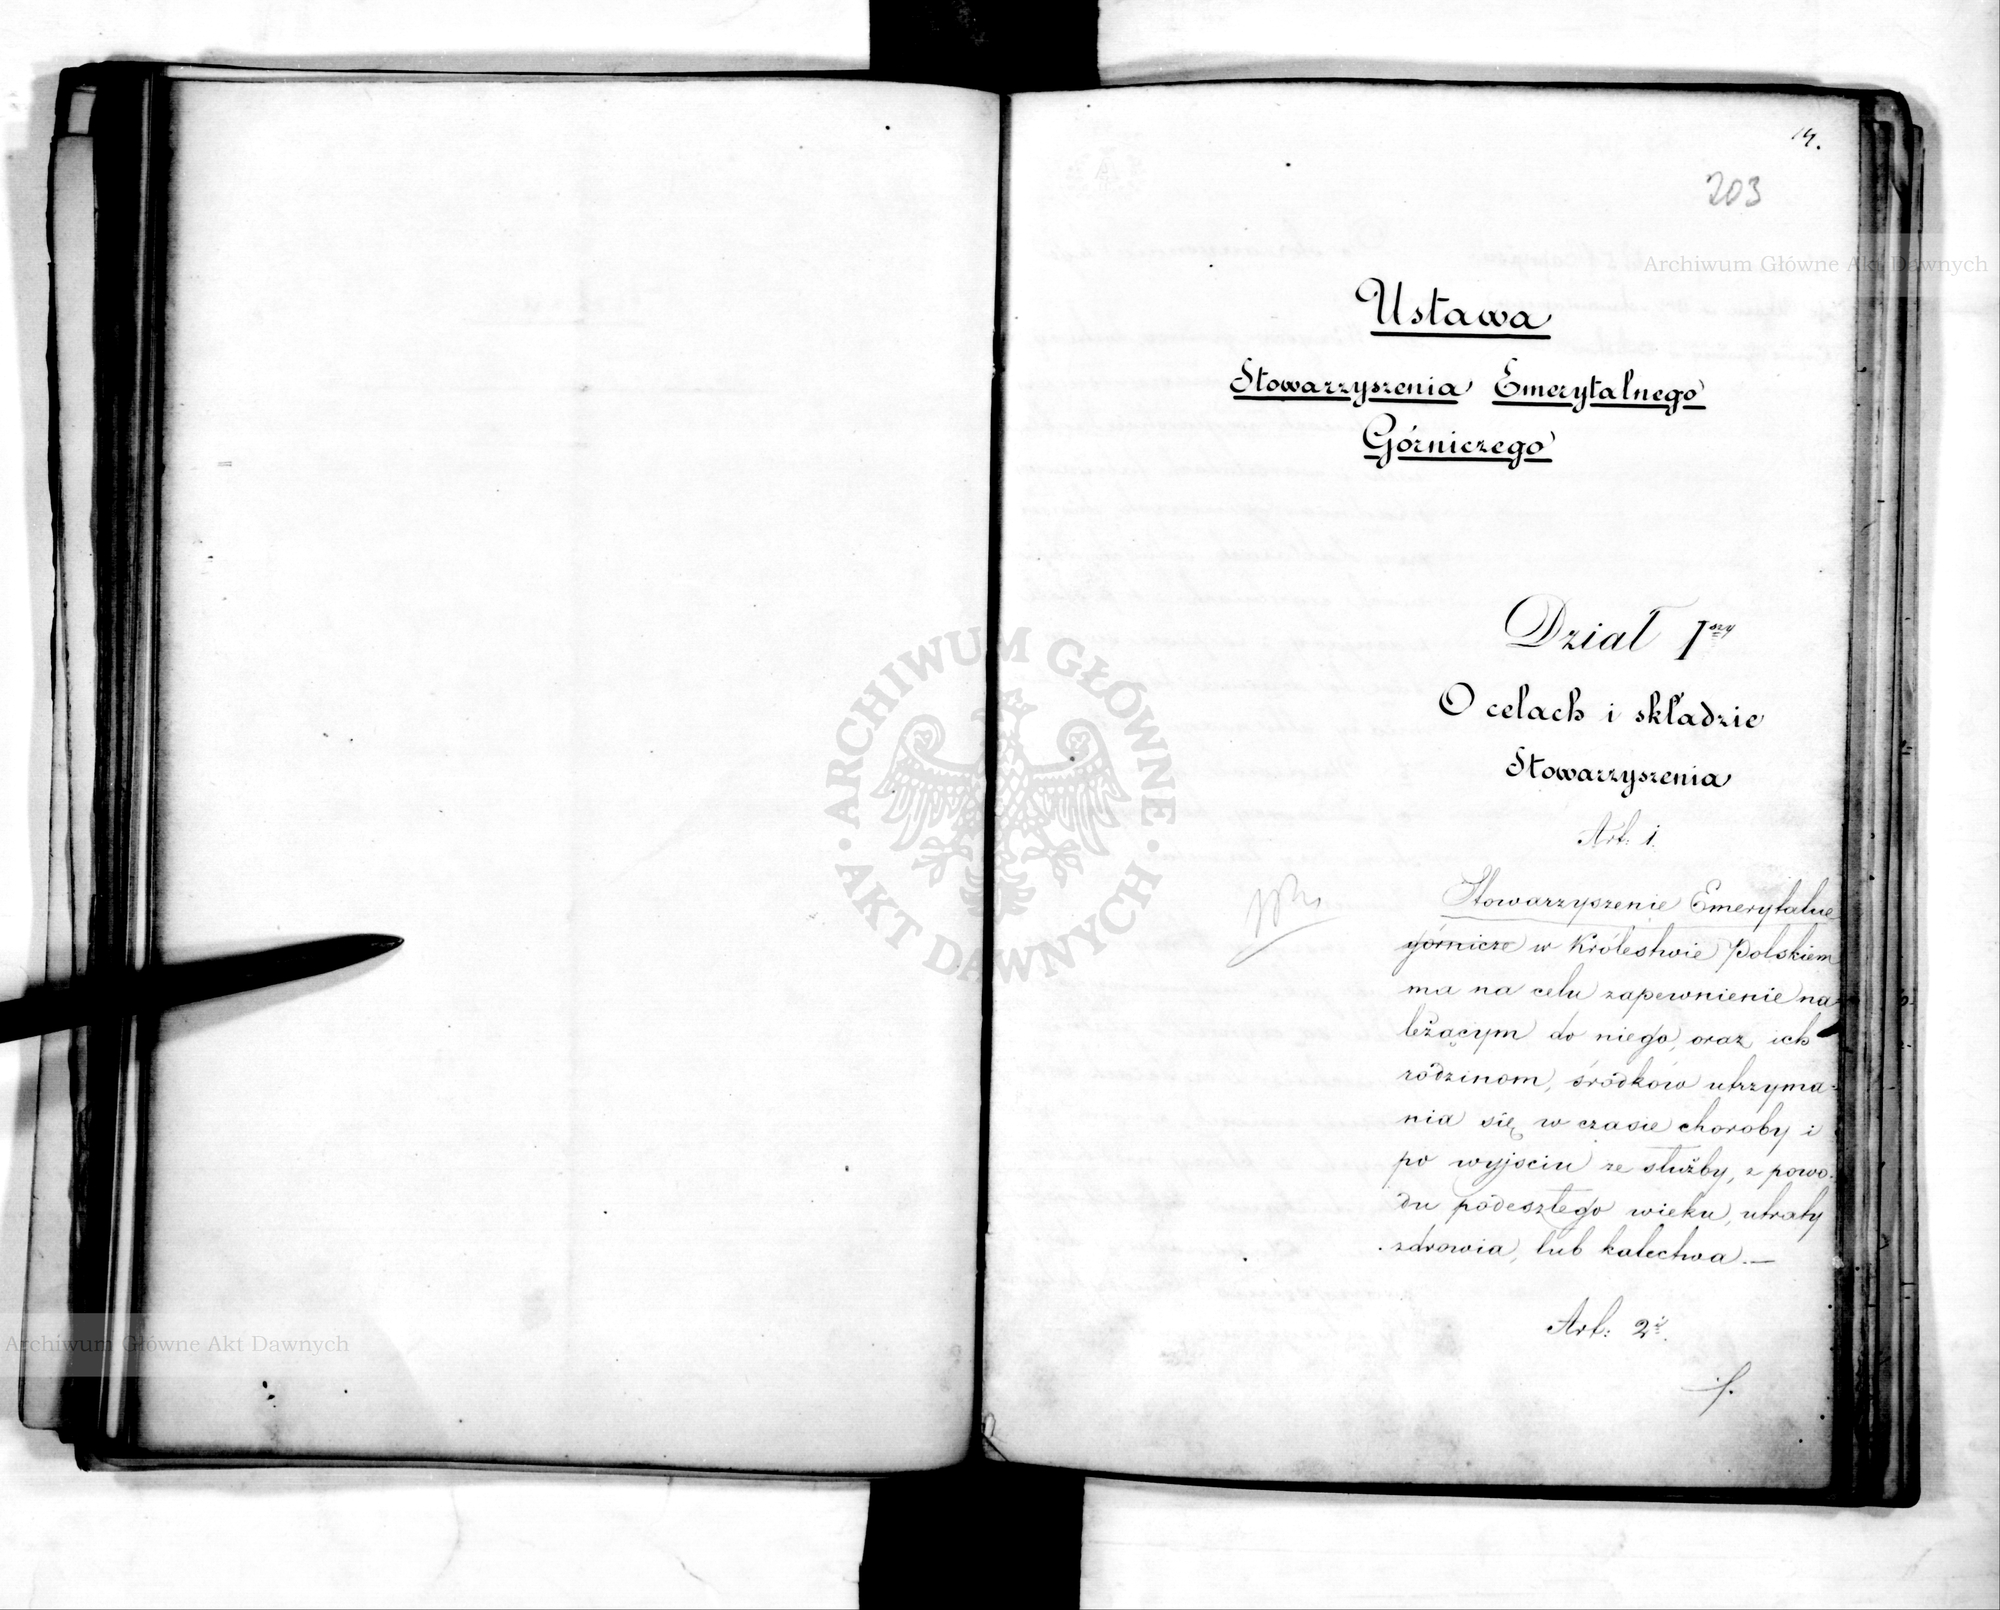 14.
203
Ustawa
Stowarzyszenia Emerytalnego
Górniczego
Dział I szy
O celach i składzie
Stowarzyszenia
Art: 1.
Stowarzyszenie Emerytalne
górnicze w Królestwie Polskiem
ma na celu zapewnienie na
leżącym do niego, oraz ich
rodzinom, środków utrzyma-
nia się w czasie choroby i
po wyjściu ze służby, z powo-
du podeszłego wieku, utraty
zdrowia, lub kalectwa.—
Art: 2i.
Archiwum Główne Akt Dawnych
Archiwum Główne Akt Dawnych
· ARCHIWUM GŁÓWNE · AKT DAWNYCH